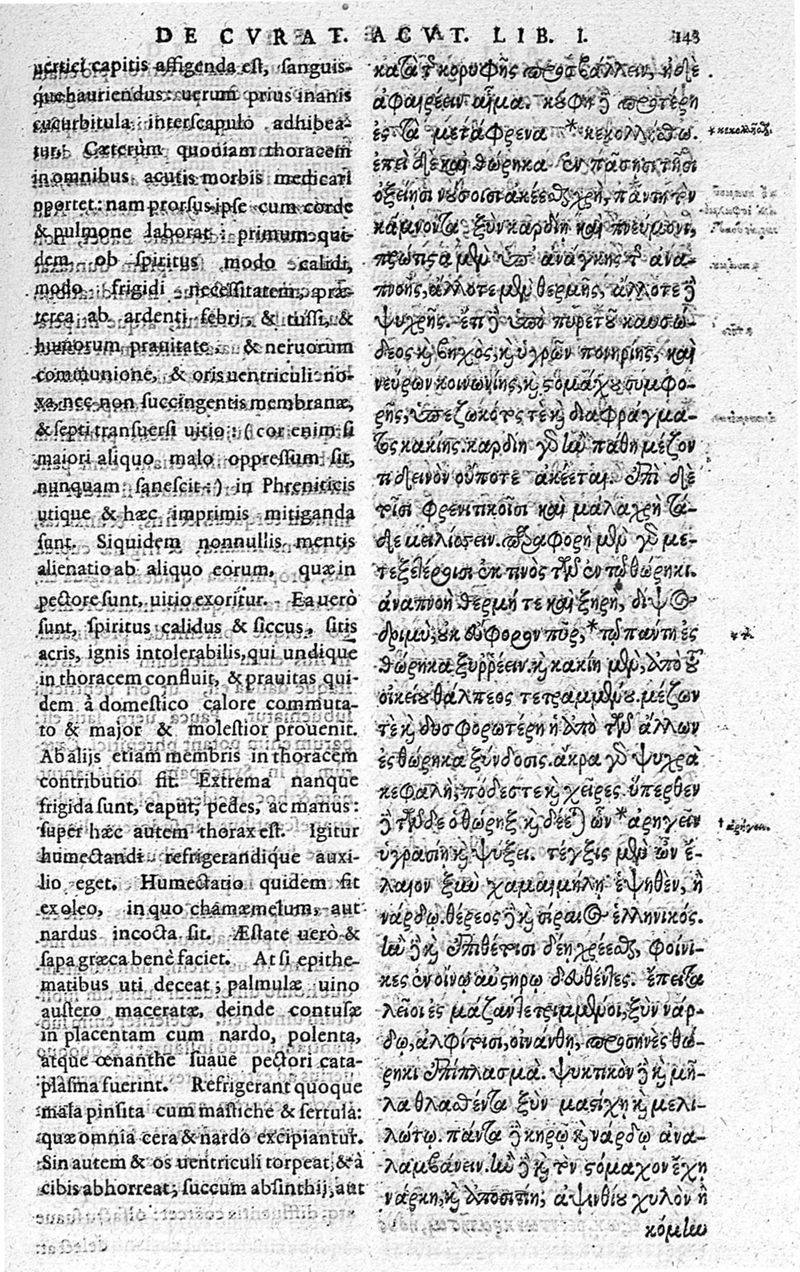 DE CVRAT. ACVT. LIB. I. 143
uertici capitis affigenda est, sanguis-
que hauriendus: uerum prius inanis
cucurbitula interscapulo adhibea-
tur. Cæterùm quoniam thoracem
in omnibus acutis morbis medicari
oportet: nam prorsus ipse cum corde
& pulmone laborat; primum qui-
dem ob spiritus modo calidi,
modo frigidi necessitatem, præ-
terea ab ardenti febri, & tussi, &
humorum prauitate, & neruorum
communione, & oris uentriculi no-
xa, nec non succingentis membranæ,
& septi transuersi uitio: (cor enim si
maiori aliquo malo oppressum sit,
nunquam sanescit:) in Phreniticis
utique & hæc imprimis mitiganda
sunt. Siquidem nonnullis mentis
alienatio ab aliquo eorum, quæ in
pectore sunt, uitio exoritur. Ea uerò
sunt, spiritus calidus & siccus, sitis
acris, ignis intolerabilis, qui undique
in thoracem confluit, & prauitas qui-
dem à domestico calore commuta-
to & major & molestior prouenit.
Ab alijs etiam membris in thoracem
contributio fit. Extrema nanque
frigida sunt, caput, pedes, ac manus:
super hæc autem thorax est. Igitur
humectandi refrigerandique auxi-
lio eget. Humectatio quidem fit
ex oleo, in quo chamæmelum, aut
nardus incocta sit. Æstate uerò &
sapa græca benè faciet. At si epithe-
matibus uti deceat; palmulæ uino
austero maceratæ, deinde contusæ
in placentam cum nardo, polenta,
atque œnanthe suaue pectori cata-
plasma fuerint. Refrigerant quoque
mala pinsita cum mastiche & sertula:
quæ omnia cera & nardo excipiantur.
Sin autem & os uentriculi torpeat, & à
cibis abhorreat; succum absinthij, aut
κατὰ τ͂ κορυφῆς προσβάλλειν, ἠδὲ
ἀφαιρέειν αἷμα. κούφη ἢ προτέρη
ἐς τὰ μετάφρενα *κεκολλήσθω.
ἐπεὶ δὲ καὶ θώρηκα ἐν πάσῃσι τῇσι
ὀξείῃσι νούσοισι ἀκέεσθαι χρὴ, πάντη τὸν
κάμνοντα ξὺν καρδίῃ καὶ πνεύμονι,
πρώτιστα μὲν ὑπ' ἀνάγκης τ͂ ἀνα-
πνοῆς, ἄλλοτε μὲν θερμῆς, ἄλλοτε δὲ
ψυχρῆς. ἔτι δὲ ὑπὸ πυρετοῦ καυσώ-
δεος καὶ βηχὸς, καὶ ὑγρῶν πονηρίης, καὶ
νεύρων κοινωνίης, καὶ στομάχου συμφο-
ρῆς, ὑπεζωκότος τε καὶ διαφράγμα-
τος κακίης. καρδίη γὰρ ἢν πάθῃ μέζον
τι δεινὸν οὔποτε ἀκέεται. ἐπὶ δὲ
τοῖσι φρενιτικοῖσι καὶ μάλα χρὴ τά-
δε μειλίσσειν. παραφορὴ μὲν γὰρ με-
τεξετέροισι ἐκ τινος τῶν ἐν τῷ θώρηκι.
ἀναπνοὴ θερμή τε καὶ ξηρὴ, δίψος
δριμὺ, οὐκ εὔφορον πῦρ, *τῷ πάντη ἐς
θώρηκα ξυρρέειν. καὶ κακίη μὲν, ἀπὸ τοῦ
οἰκείου θάλπεος τετραμμένου. μέζων
τε καὶ δυσφορωτέρη ἡ ἀπὸ τῶν ἄλλων
ἐς θώρηκα ξύνδοσις. ἄκρα γὰρ ψυχρὰ
κεφαλὴ, πόδες τε καὶ χεῖρες. ὕπερθεν
δὲ τῶνδε ὁ θώρηξ καὶ δέεται ὧν *ἀρηγεῖν
ὑγρασίῃ καὶ ψύξει. τέγξις μὲν ὦν ἔ-
λαιον ξὺν χαμαιμήλῃ ἑψηθὲν, ἢ
νάρδῳ. θέρεος δὲ καὶ σίραιος ἑλληνικός.
ἢν δὲ καὶ ἐπιθέτοισι δέῃ χρέεσθαι, φοίνι-
κες ἐν οἴνῳ αὐστηρῷ δευθέντες. ἔπειτα
λεῖοι ἐς μάζαν λετριμμένοι, ξὺν νάρ-
δῳ, ἀλφίτοισι, οἰνάνθῃ, προσηνὲς θώ-
ρηκι ἐπίπλασμα. ψυκτικὸν δὲ καὶ μῆ-
λα θλασθέντα ξὺν μαστίχῃ καὶ μελι-
λώτῳ. πάντα δὲ κηρῷ καὶ νάρδῳ ἀνα-
λαμβάνειν. ἢν δὲ καὶ τὸν στόμαχον ἔχῃ
νάρκη, καὶ ἀποσιτίη, ἀψινθίου χυλὸν ἢ
κόμην